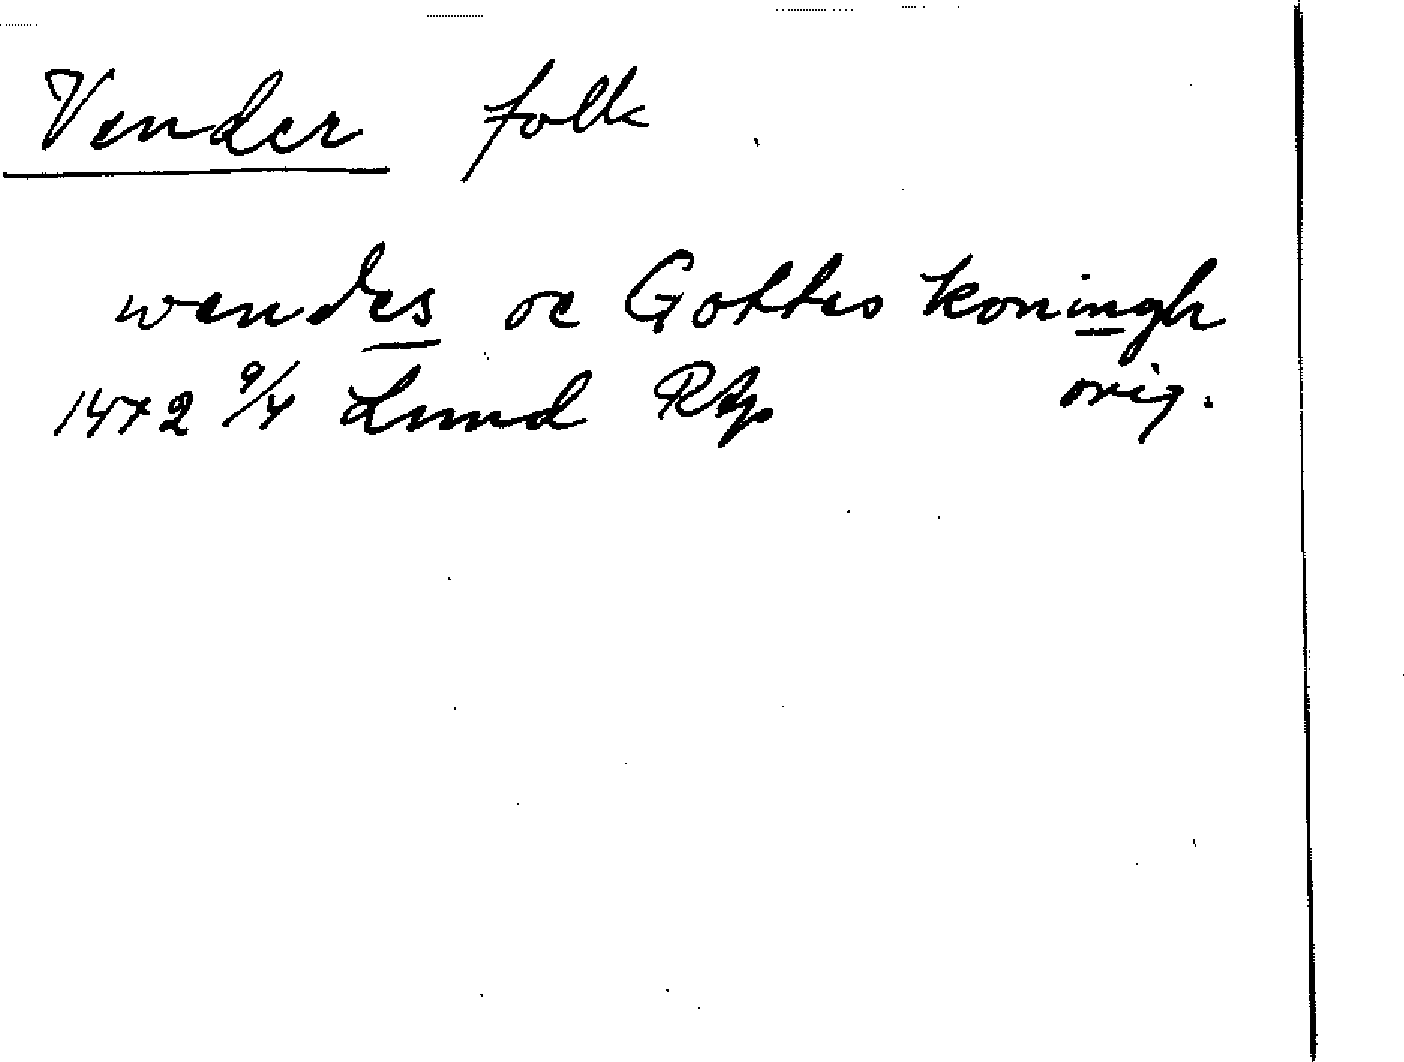 Vender folk
wendes oc Gottes koningh
1472 9/4 Lund Rap orig.